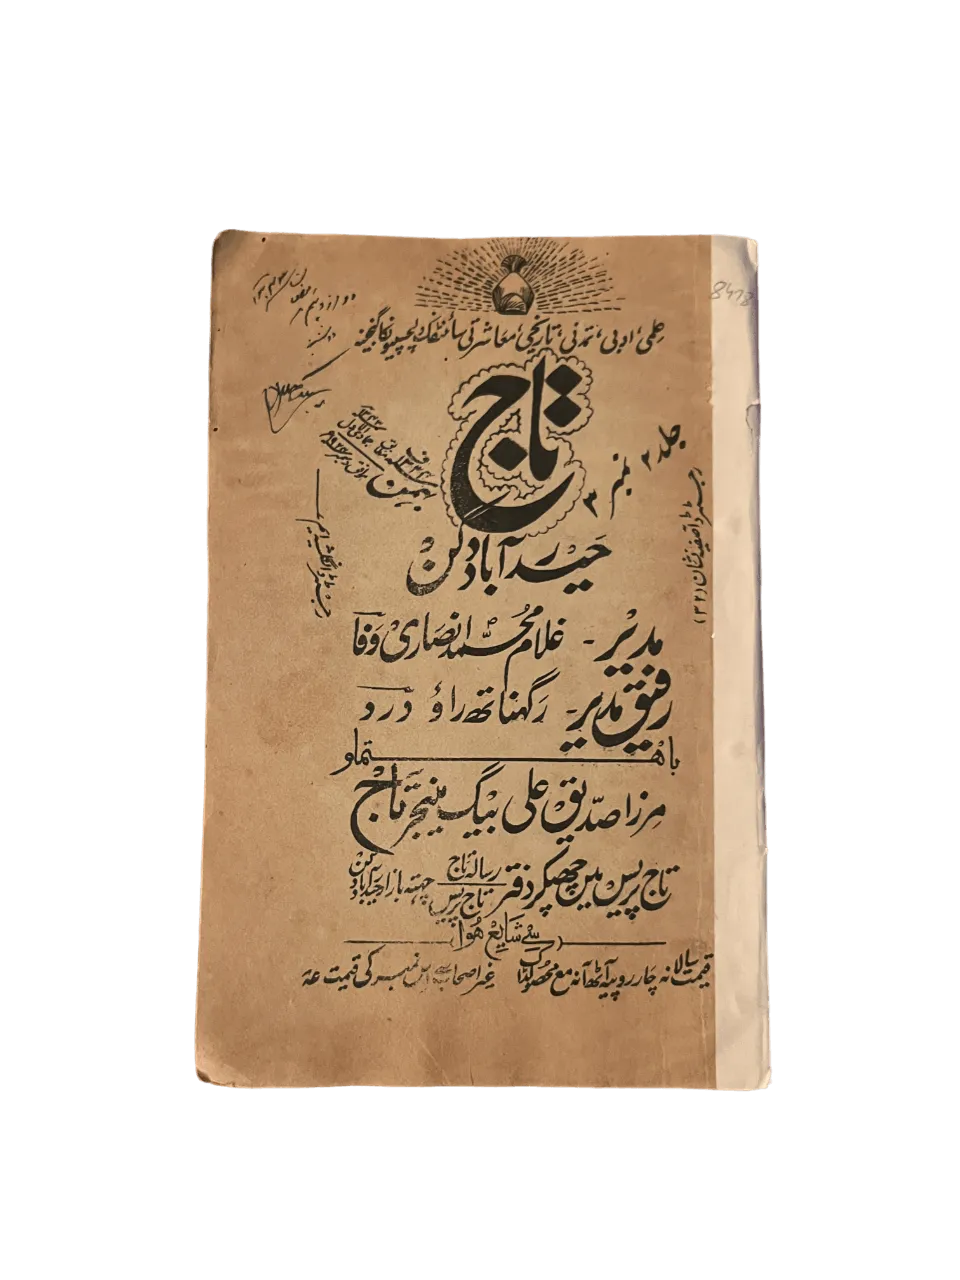 علمی، ادبی، تمدنی، تاریخی، معاشرتی سائنٹفک دلچسپیوں کا گنجینہ
تاج
جلد ۲ نمبر ۳
بہمن ۱۳۳۴ ف
رجسٹرڈ آصفیہ نشان (۳۲)
حیدرآباد دکن
مدیر۔ غلام محمد انصاری وفا
رفیق مدیر۔ رگھناتھ راؤ درد
باہتمام
مرزا صدیق علی بیگ منیجر تاج
تاج پریس میں چھپکر دفتر رسالہ تاج تاج پریس چھتہ بازار حیدرآباد دکن
(سے شایع ہوا)
قیمت سالانہ چار روپیہ آٹھ آنہ مع محصولڈاک غیر اصحاب سے اس نمبر کی قیمت عہ
8478